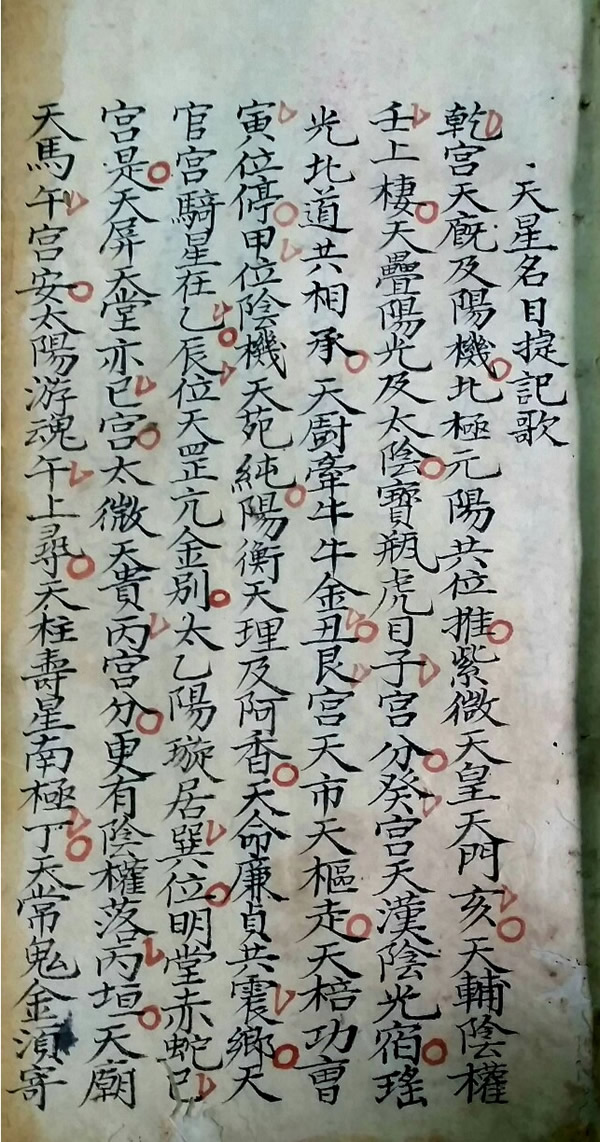 天星名目捷記歌
乾宮天廐及陽機北極元陽共位推紫微天皇天門亥天輔陰權
壬上棲天疊陽光及太陰寶瓶虎目子宮分癸宮天漢陰光宿瑤
光北道共相承天廚牽牛牛金丑艮宮天市天樞走天棓功曹
寅位停甲位陰機天苑純陽衡天理及阿香天命廉貞共震鄉天
官宮騎星在乙辰位天罡亢金别太乙陽璇居巽位明堂赤蛇巳
宮是天屏天堂亦巳宮太微天貴丙宮分更有陰權落丙垣天廟
天馬午宮安太陽游魂午上尋天柱壽星南極丁天常鬼金湏寄